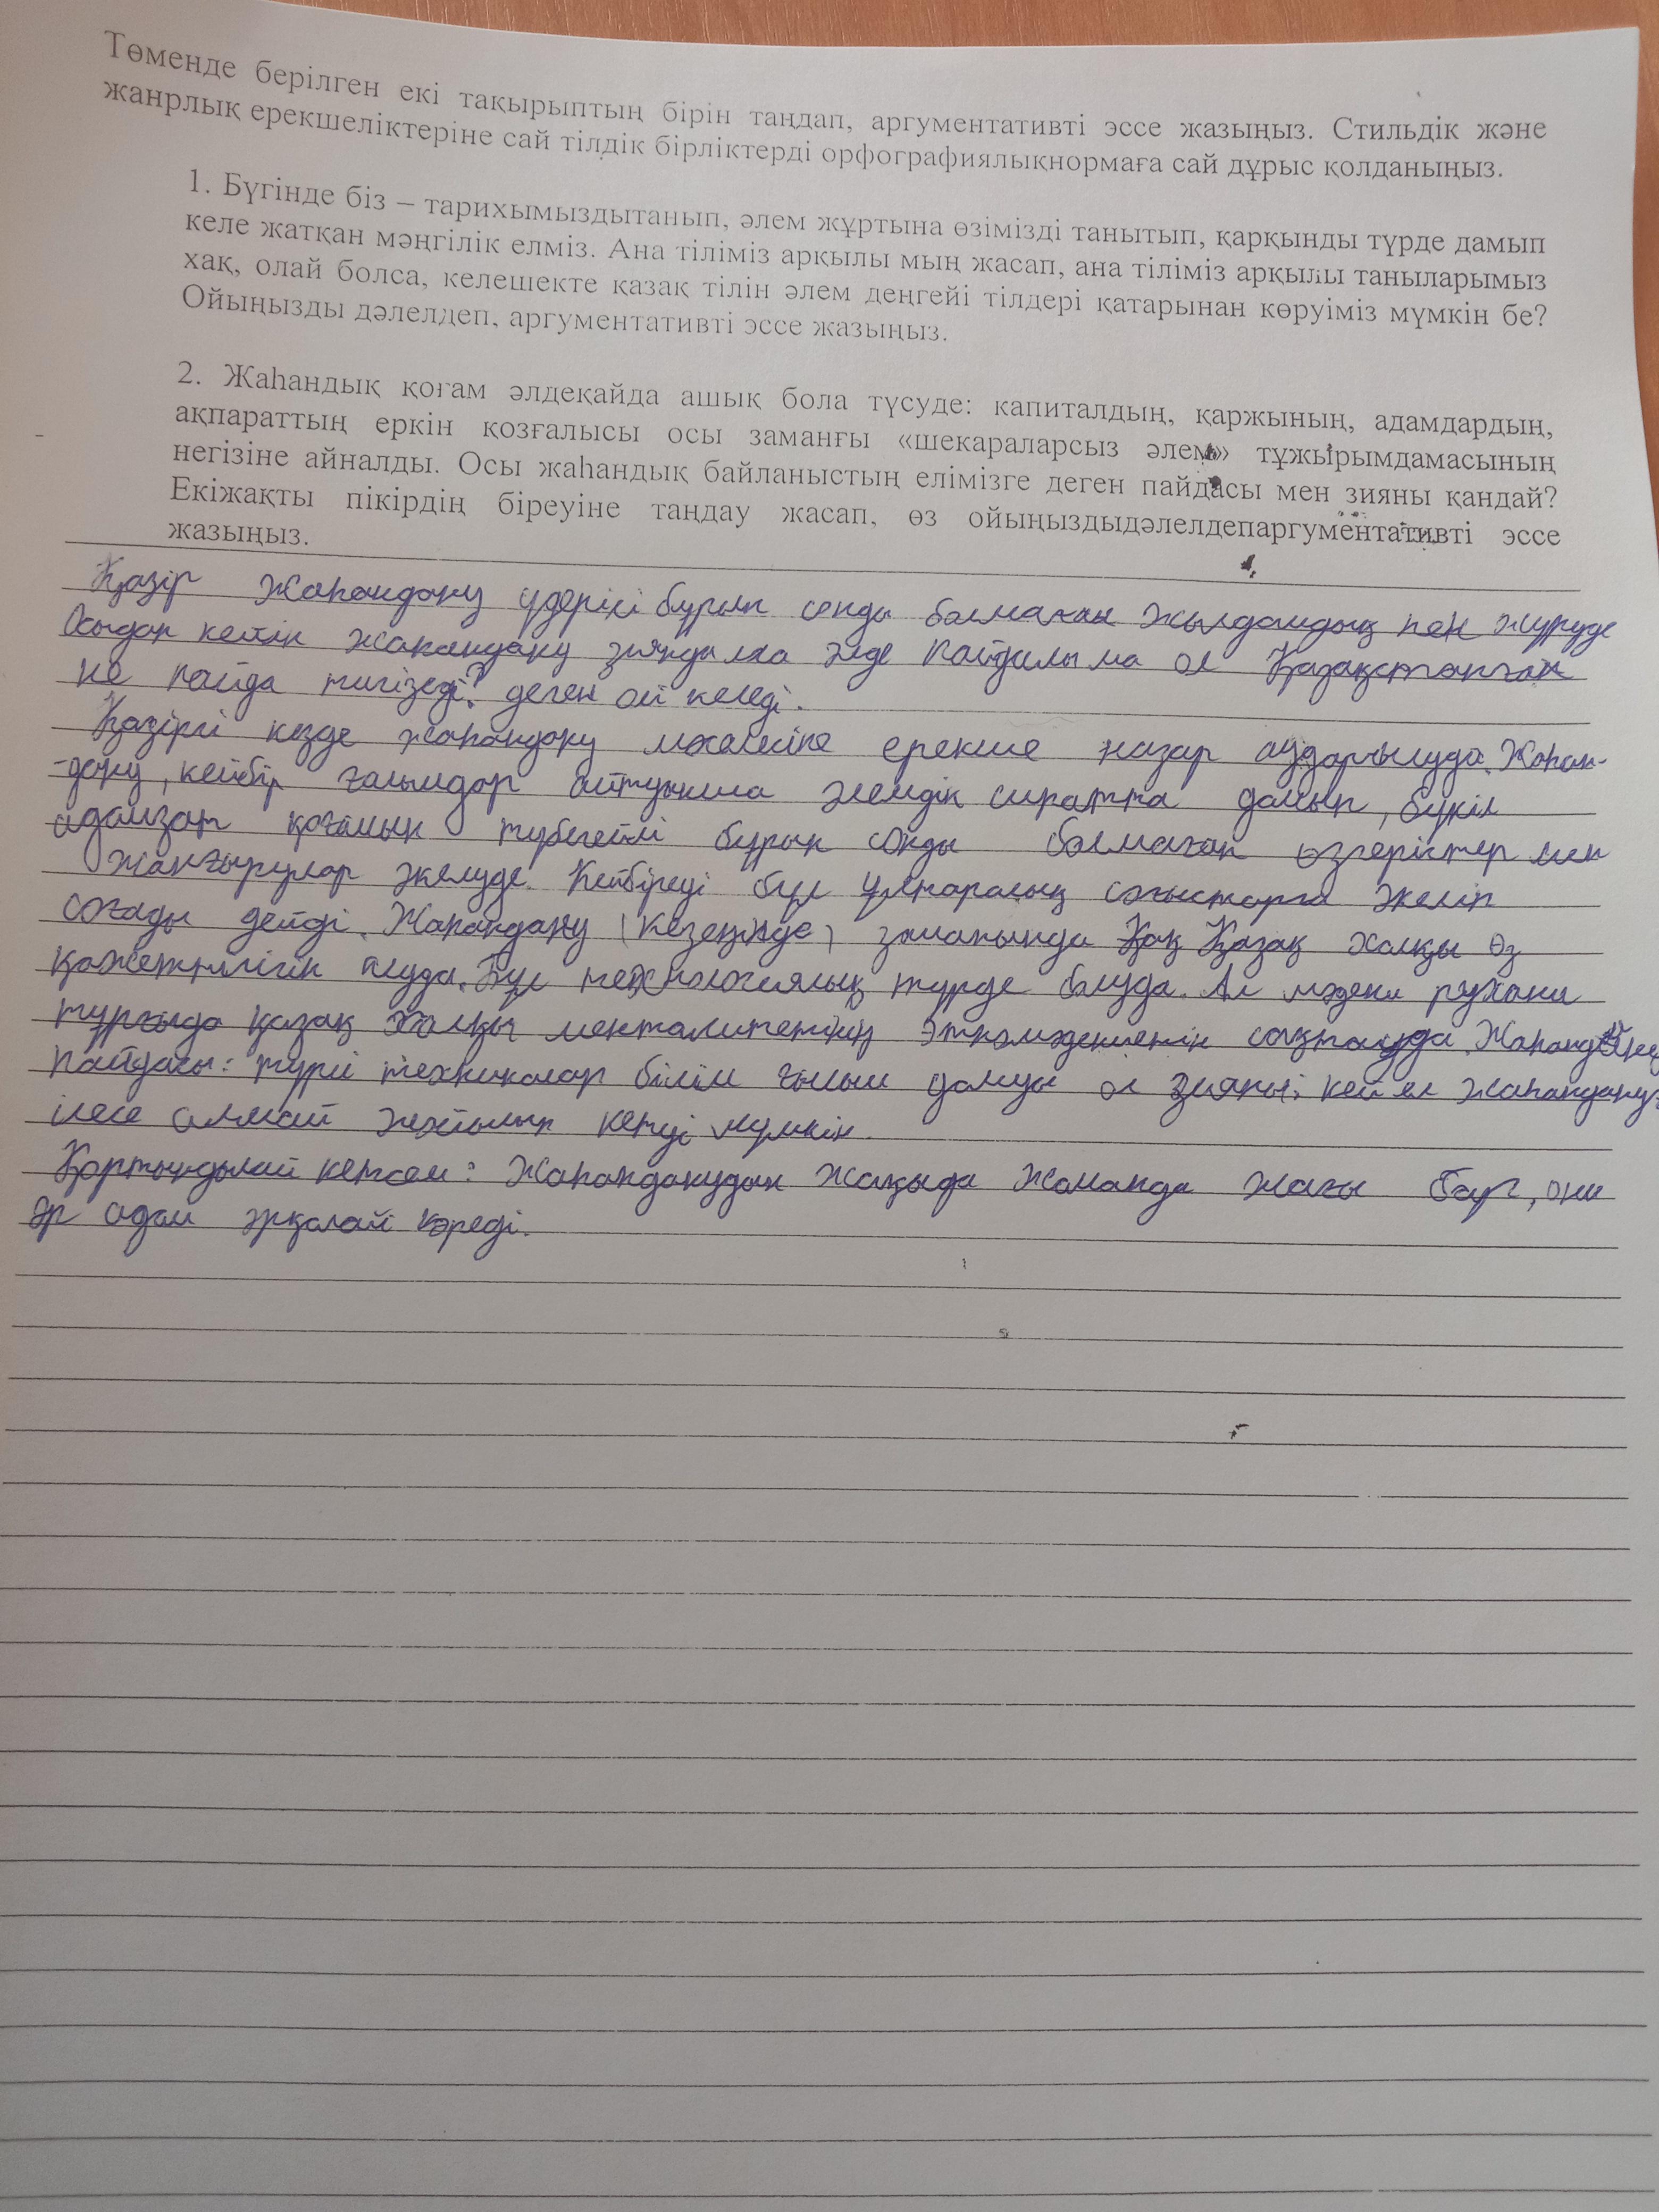 Төменде берілген екі тақырыптың бірін таңдап, аргументативті эссе жазыңыз. Стильдік және
жанрлық ерекшеліктеріне сай тілдік бірліктерді орфографиялықнормаға сай дұрыс қолданыңыз.
1. Бүгінде біз – тарихымыздытанып, әлем жұртына өзімізді танытып, қарқынды түрде дамып
келе жатқан мәңгілік елміз. Ана тіліміз арқылы мың жасап, ана тіліміз арқылы таныларымыз
хақ, олай болса, келешекте қазақ тілін әлем деңгейі тілдері қатарынан көруіміз мүмкін бе?
Ойыңызды дәлелдеп, аргументативті эссе жазыңыз.
2. Жаһандық қоғам әлдеқайда ашық бола түсуде: капиталдың, қаржының, адамдардың,
ақпараттың еркін қозғалысы осы заманғы «шекараларсыз әлем» тұжырымдамасының
негізіне айналды. Осы жаһандық байланыстың елімізге деген пайдасы мен зияны қандай?
Екіжақты пікірдің біреуіне таңдау жасап, өз ойыңыздыдәлелдепаргументативті эссе
жазыңыз.
Қазір жаһандану үдерісі бұрын соңды болмаған жылдамдық пен жүруде
Осыдан кейін жаһандану зиянды ма әлде пайдалы ма ол Қазақстанған
не пайда тигізеді? деген ой келеді.
Қазіргі кезде жаһандану мәселесіне ерекше назар аударылуда. Жаһан-
-дану, кейбір ғалымдар айтуынша әлемдік сипатта дамып, бүкіл
адамзат қоғамын түбегейлі бұрын соңды болмаған өзгерістер мен
жаңғырулар әкелуде. Кейбіреуі бұл ұлтаралық соғыстарға әкеліп
соғады дейді. Жаһандану (кезеңінде) заманында Қаң Қазақ халқы өз
қажеттілігін алуда. Бұл технологиялық түрде болуда. Ал мәдени рухани
тұрғыда қазақ халқы менталитетінің этномәдениетін сақтауда. Жаһандану
пайдасы: түрлі техникалар білім ғылым дамуы ал зияны: кей ел жаһандануға
ілесе алмай жойылып кетуі мүмкін.
Қортындылай кетсем: Жаһанданудын жақыда жаманда жағы бар, оны
әр адам әрқалай көреді.